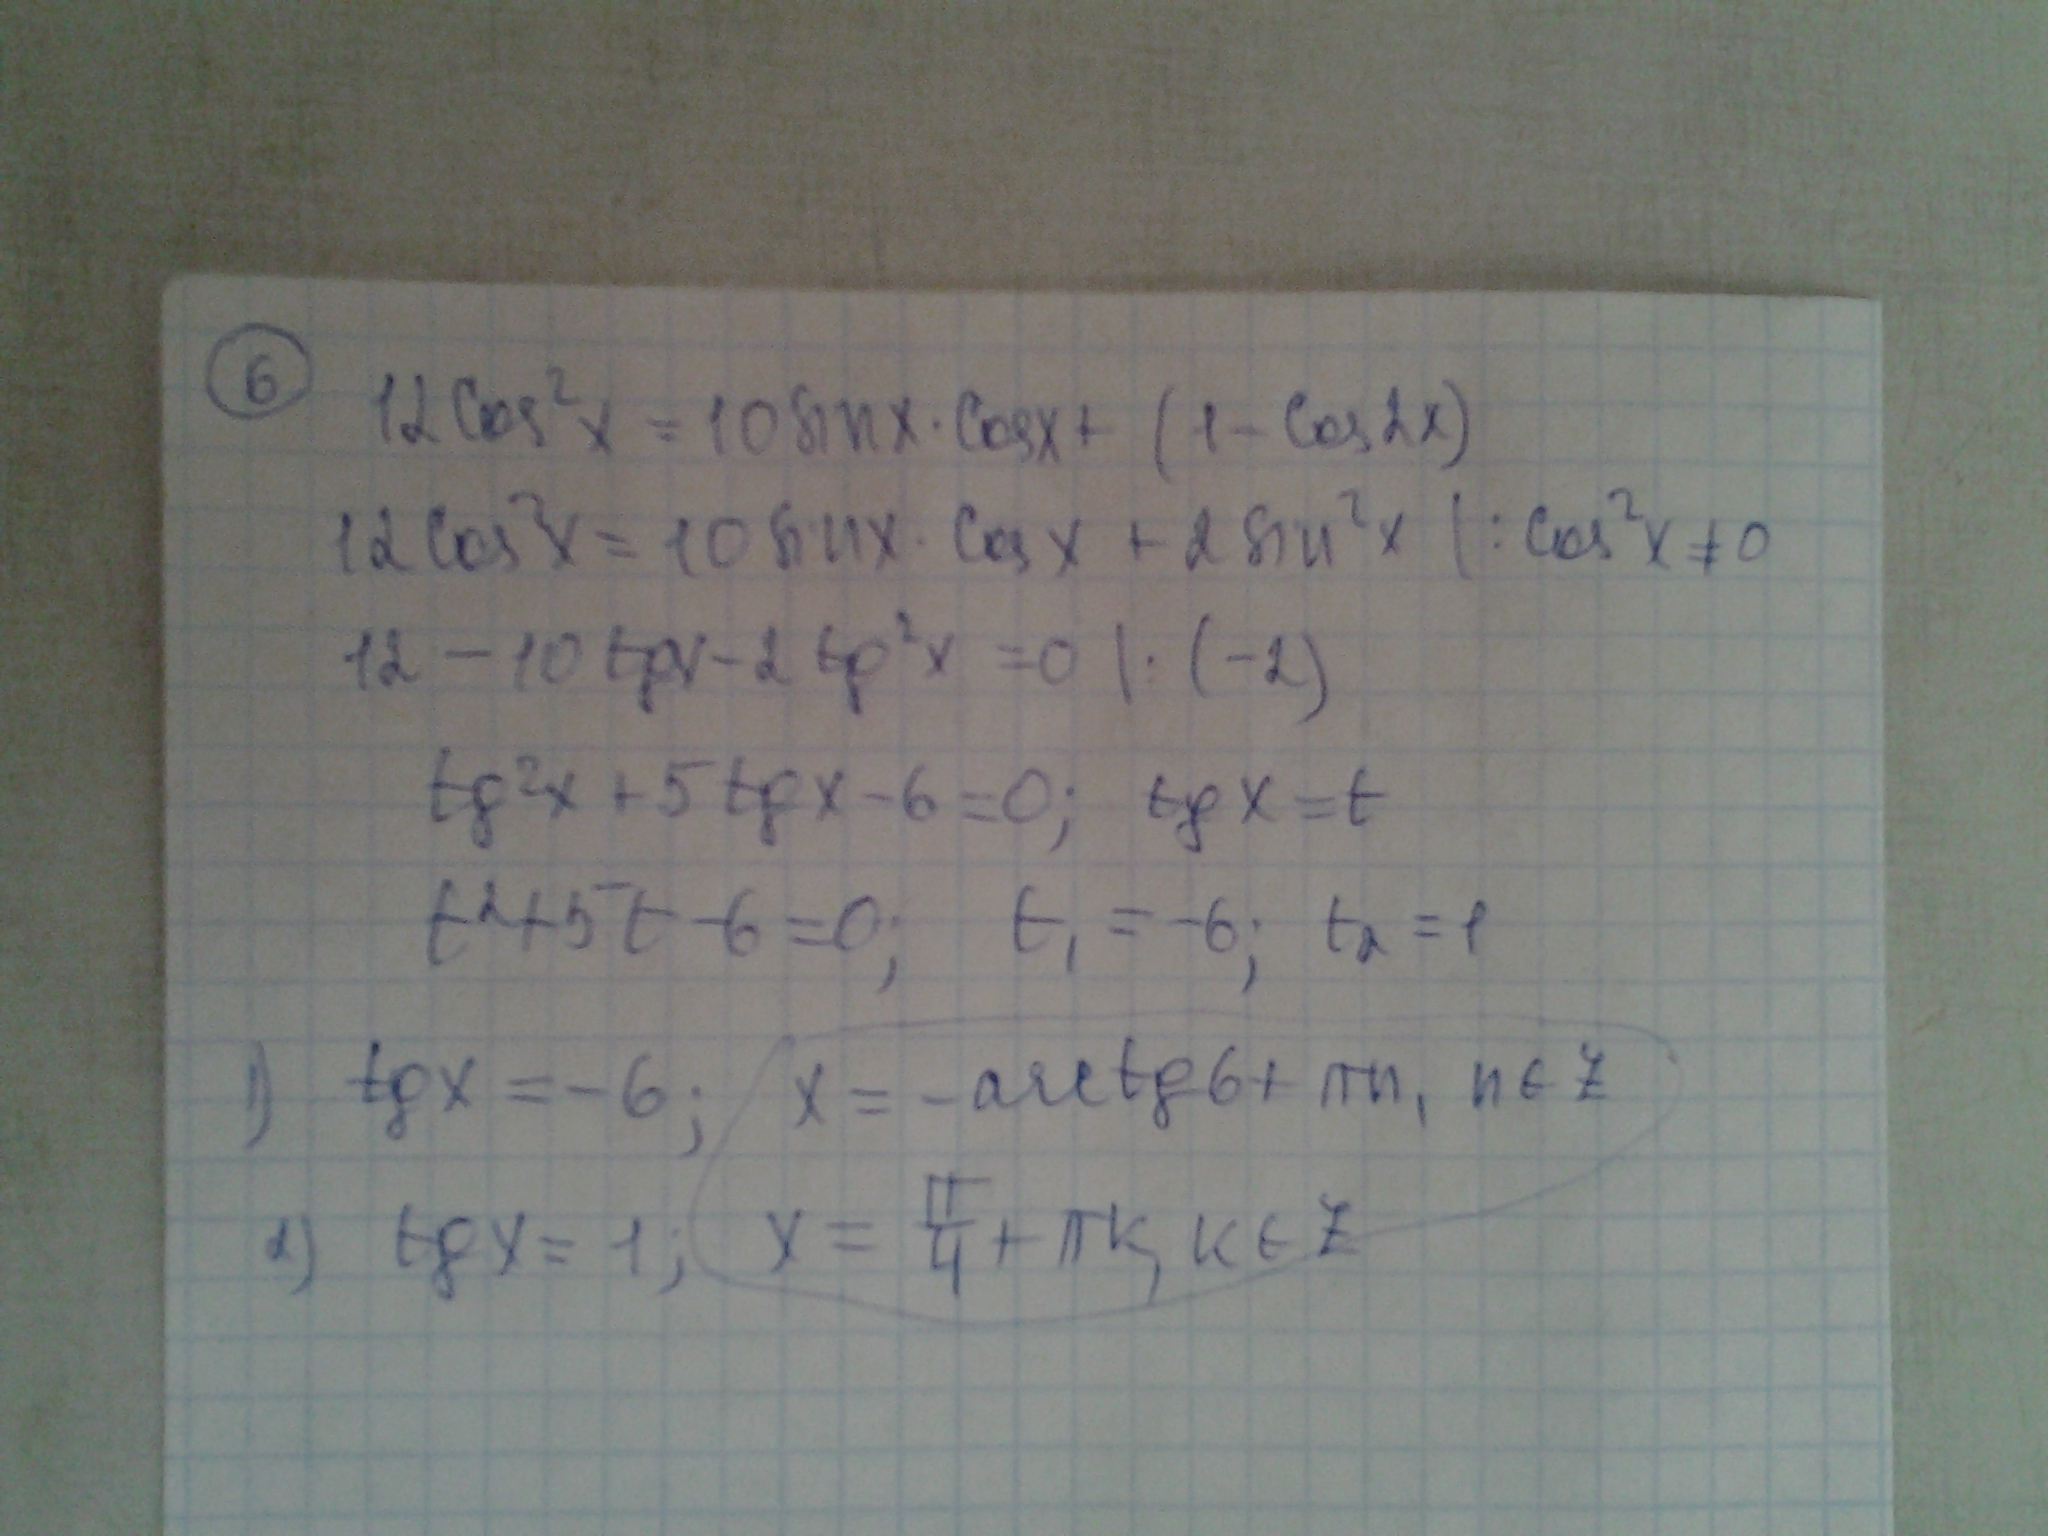 6
12 cos²x = 10 sin x · cos x + (1 - cos 2x)
12 cos²x = 10 sin x · cos x + 2 sin²x |: cos²x ≠ 0
12 - 10 tgx - 2 tg²x = 0 |: (-2)
tg²x + 5 tgx - 6 = 0; tgx = t
t² + 5t - 6 = 0; t₁ = -6; t₂ = 1
1) tgx = -6; x = -arctg6 + πn, n ∈ Z
2) tgx = 1; x = π/4 + πk, k ∈ Z